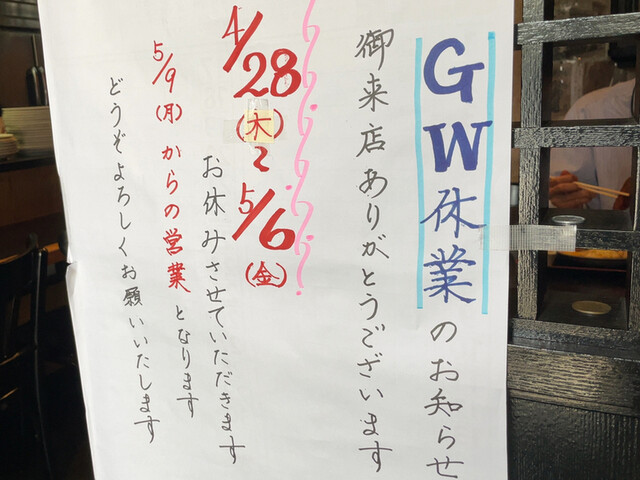 GW休業のお知らせ
御来店ありがとうございます
4/28(木)〜5/6(金)
お休みさせていただきます
5/9(月)からの営業となります
どうぞよろしくお願いいたします